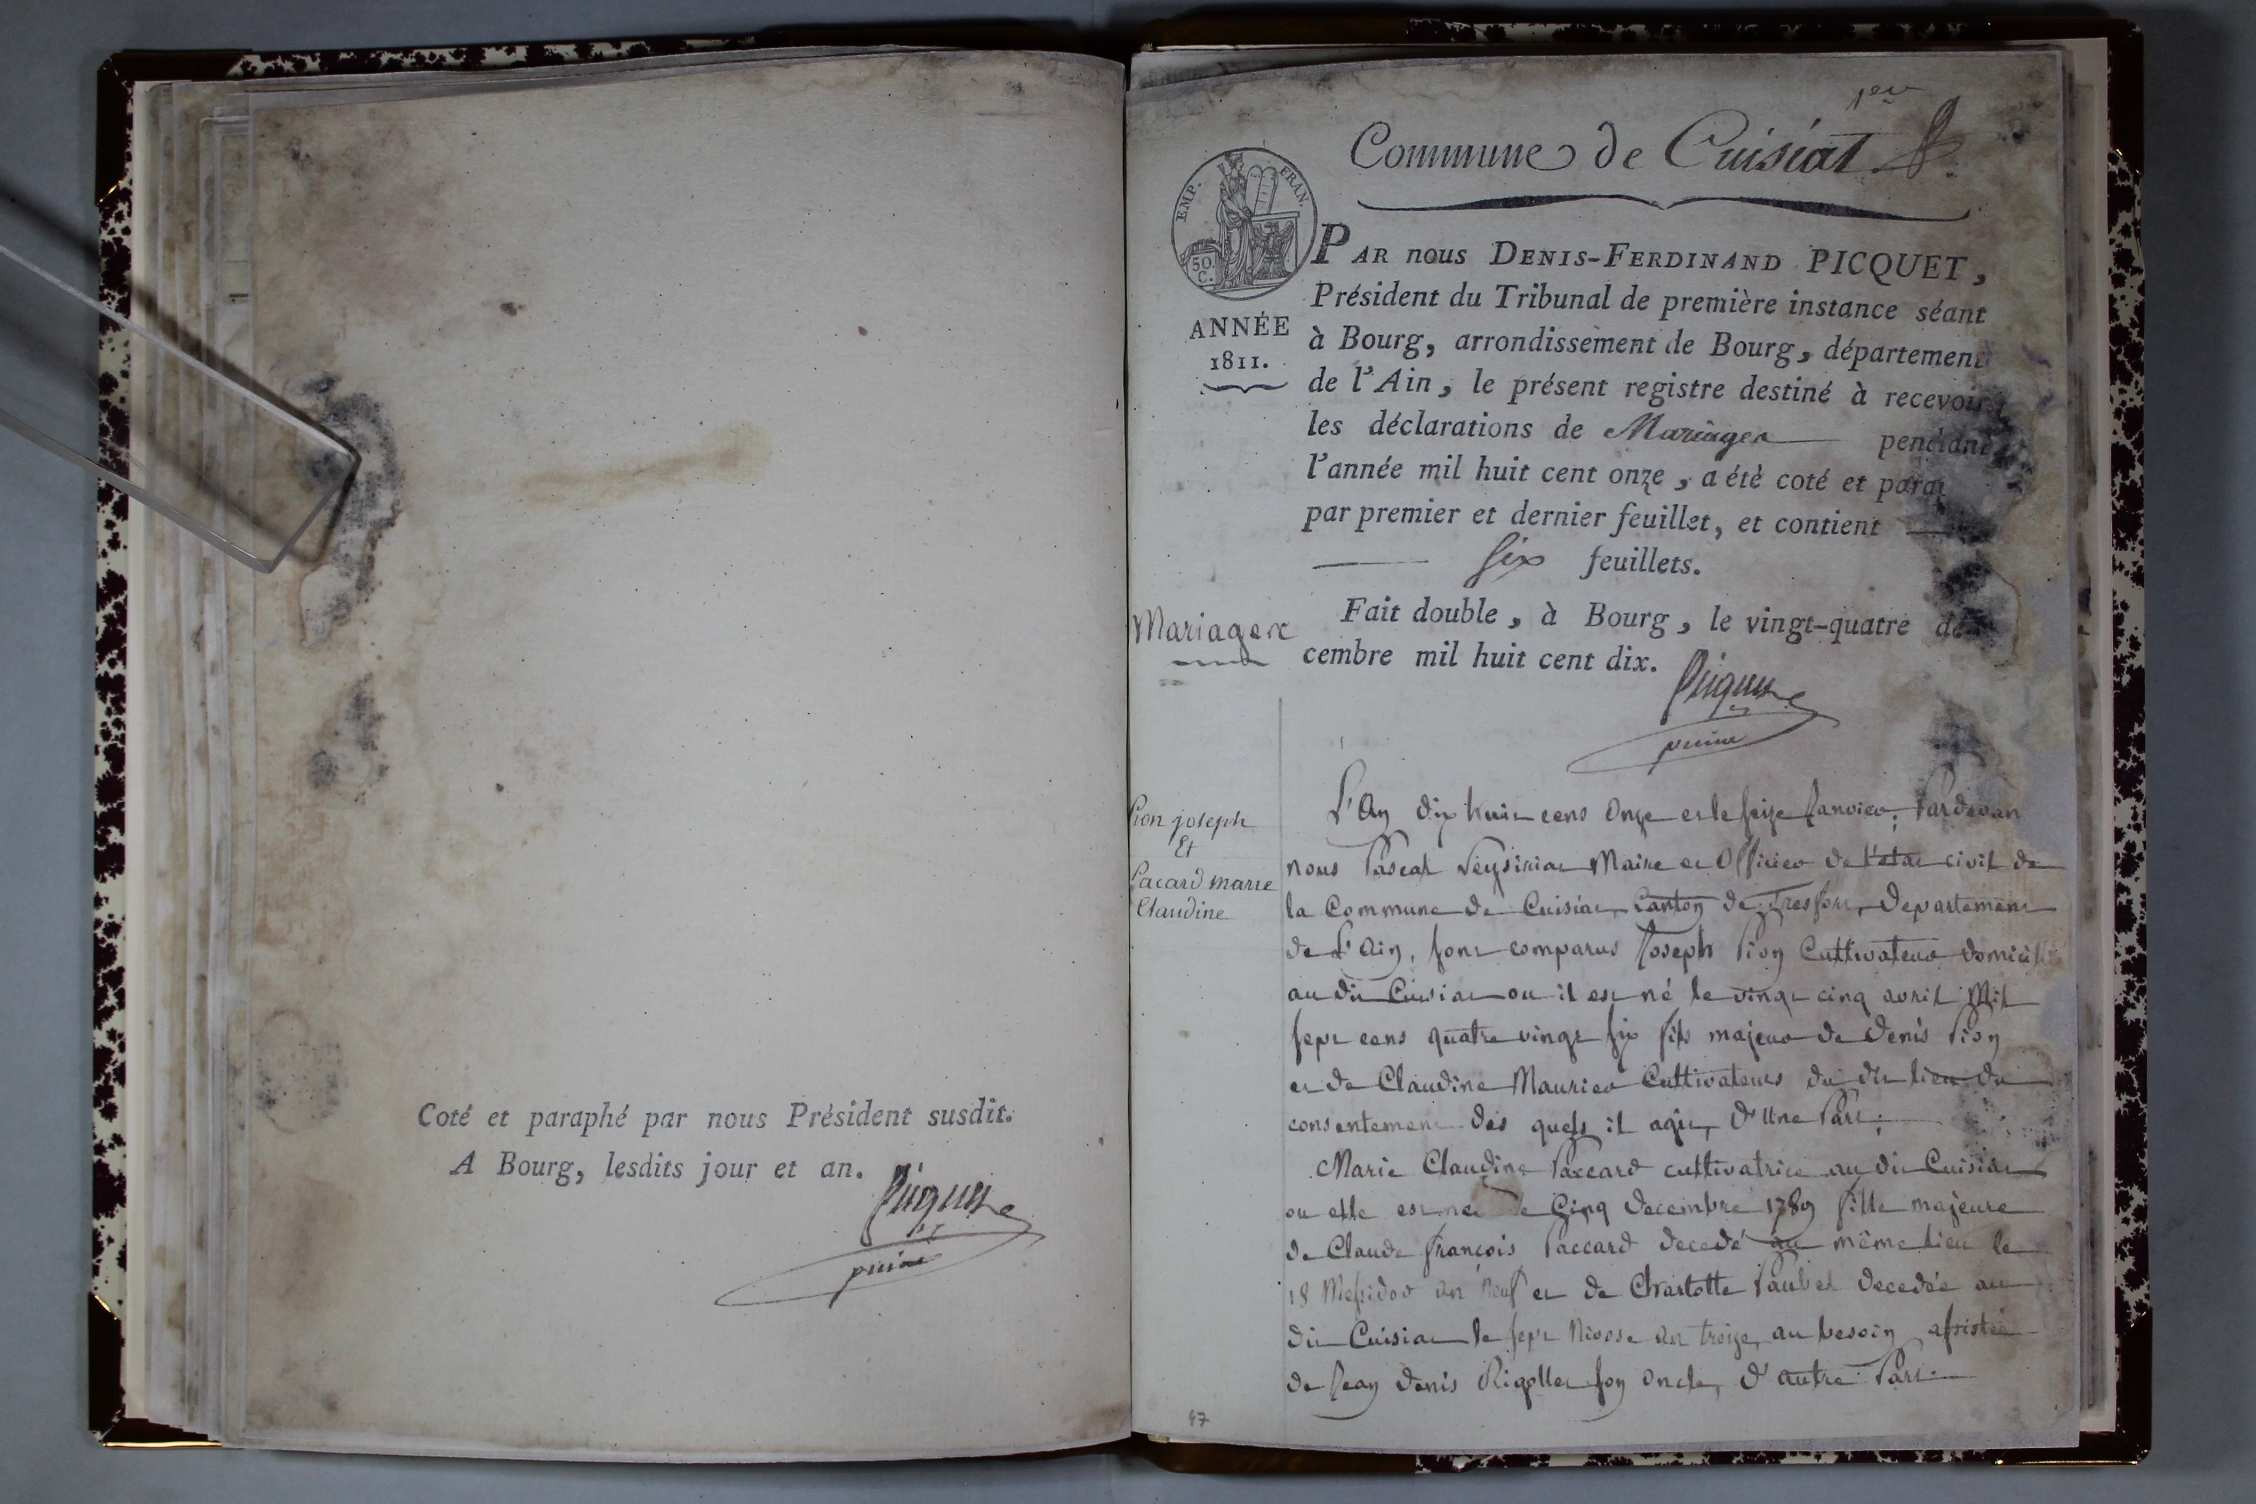 Coté et paraphé par nous Président susdit.
A Bourg, lesdits jour et an.
Picquet
1er
Commune de Cuisiat
EMP. FRAN.
50 C.
ANNÉE
1811.
PAR nous DENIS-FERDINAND PICQUET,
Président du Tribunal de première instance séant
à Bourg, arrondissement de Bourg, département
de l'Ain, le présent registre destiné à recevoir
les déclarations de Mariages pendant
l'année mil huit cent onze, a été coté et para
par premier et dernier feuillet, et contient
six feuillets.
Fait double, à Bourg, le vingt-quatre dé
cembre mil huit cent dix.
Picquet
Mariages
Pion joseph
Et
Pacard marie
Claudine
L'An dix huit cens Onze et le seize Janvier, Pardevan
nous Pascal Veysiriat Maire et Officier de l'etat civil de
la Commune de Cuisiat, Canton de Tresfort, Departement
de L'Ain, sont comparus Joseph Pion Cultivateur domicilié
au dit Cuisiat ou il est né le vingt cinq avril Mil
sept cens quatre vingt six fils majeur de Denis Pion
et de Claudine Maurier Cultivateurs du dit lieu du
consentement des quels il agit, D'Une Part;
Marie Claudine Paccard cultivatrice au dit Cuisiat
ou elle est née le Cinq Decembre 1789 fille majeure
de Claude françois Paccard decedé au même lieu le
18 Messidor an neuf et de Charlotte Paubel Decedée au
dit Cuisiat le sept Nivose an treize, au besoin assistée
de Jean Denis Rigollet son Oncle, D'autre Part.
47